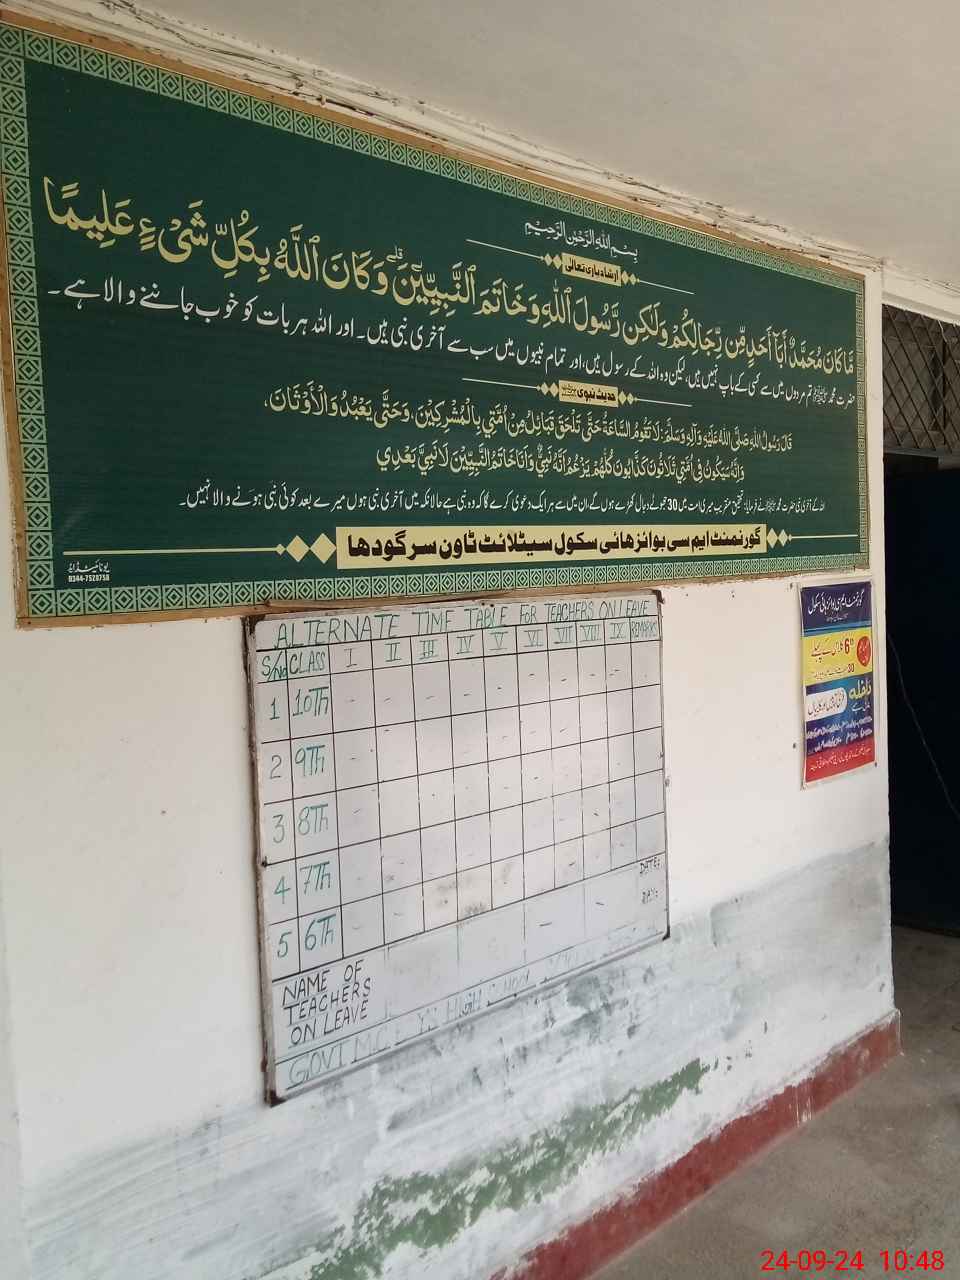 بِسْمِ اللهِ الرَّحْمٰنِ الرَّحِيْمِ
ارشاد باری تعالیٰ
مَّا كَانَ مُحَمَّدٌ أَبَآ أَحَدٍ مِّن رِّجَالِكُمْ وَلَٰكِن رَّسُولَ ٱللَّهِ وَخَاتَمَ ٱلنَّبِيِّـۧنَ ۗ وَكَانَ ٱللَّهُ بِكُلِّ شَىْءٍ عَلِيمًا
حضرت محمد ﷺ تم مردوں میں سے کسی کے باپ نہیں ہیں، لیکن وہ اللہ کے رسول ہیں، اور تمام نبیوں میں سب سے آخری نبی ہیں۔ اور اللہ ہر بات کو خوب جاننے والا ہے۔
حدیث نبوی
قَالَ رَسُولُ اللهِ صَلَّى اللهُ عَلَيْهِ وَآلِهِ وَسَلَّمَ: لَا تَقُومُ السَّاعَةُ حَتَّى تَلْحَقَ قَبَائِلُ مِنْ أُمَّتِي بِالْمُشْرِكِيْنَ، وَحَتَّى يَعْبُدُوا الْأَوْثَانَ،
وَإِنَّهُ سَيَكُونُ فِي أُمَّتِي ثَلَاثُونَ كَذَّابُونَ كُلُّهُمْ يَزْعُمُ أَنَّهُ نَبِيٌّ وَأَنَا خَاتَمُ النَّبِيِّينَ لَا نَبِيَّ بَعْدِي
اللہ کے آخری نبی حضرت محمد ﷺ نے فرمایا: تحقیق عنقریب میری امت میں 30 جھوٹے دجال کھڑے ہوں گے، ان میں سے ہر ایک دعویٰ کرے گا کہ وہ نبی ہے حالانکہ میں آخری نبی ہوں میرے بعد کوئی نبی ہونے والا نہیں۔
گورنمنٹ ایم سی بوائز ھائی سکول سیٹلائٹ ٹاون سرگودھا
یونائیٹڈ ایڈ
0344-7520758
ALTERNATE TIME TABLE FOR TEACHERS ON LEAVE
S/No CLASS I II III IV V VI VII VIII IX REMARKS
1 10Th
2 9Th
3 8Th
4 7Th
5 6Th
DATE:
DAY:
NAME OF
TEACHERS
ON LEAVE
GOVT M.C HIGH
گورنمنٹ ایم سی بوائز ہائی سکول
6th کلاس کے پہلے
30
داخلہ